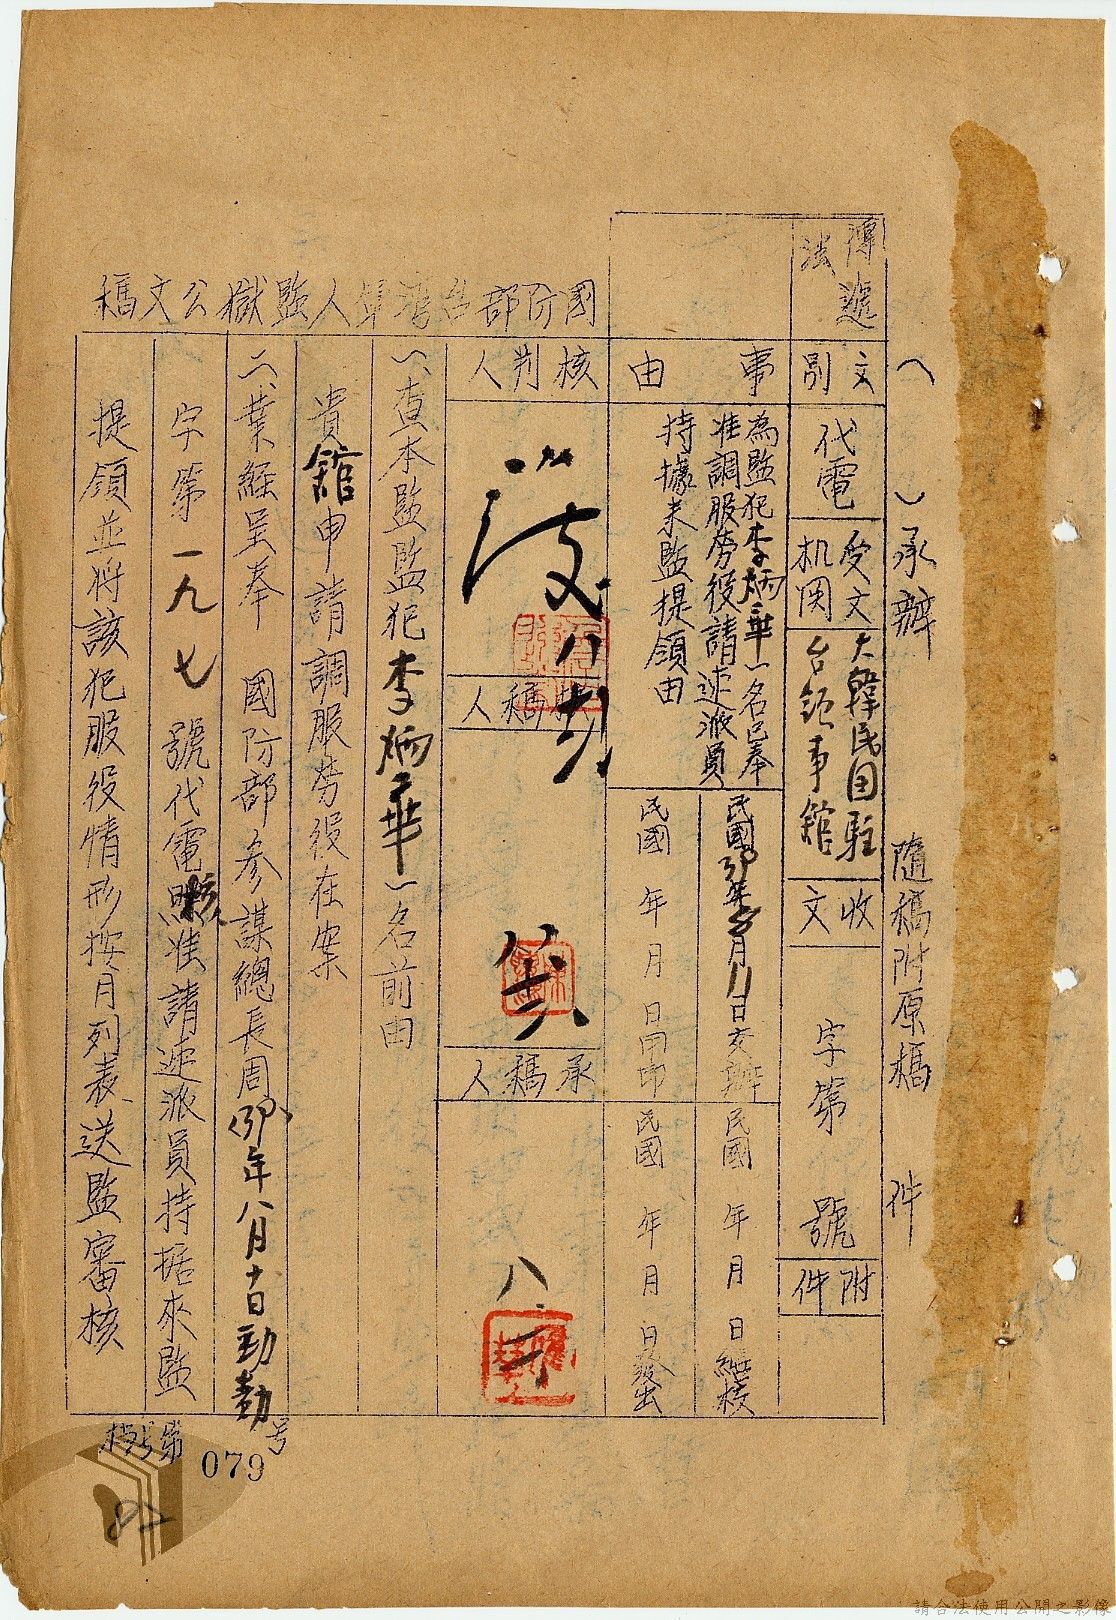 （　　）承辦　　隨稿附原稿　　件
傳遞
法
文別
代電
受文
机関
大韓民国駐
台領事館
收文
字第　　號
附件
事由
為監犯李炳華一名已奉
准調服勞役請速派員
持據來監提領由
民國39年8月11日交辦
民國　年　月　日繕校
民國　年　月　日用印
民國　年　月　日發出
國防部台灣軍人監獄公文稿
核判人
核稿人
承稿人
一、查本監監犯李炳華一名前由
貴館申請調服勞役在案
二、業經呈奉　國防部參謀總長周(39)年八月十日勁勸
字第一九七號代電核准請速派員持据來監
提領並將該犯服役情形按月列表送監審核
号
079
請合法使用公開之影像